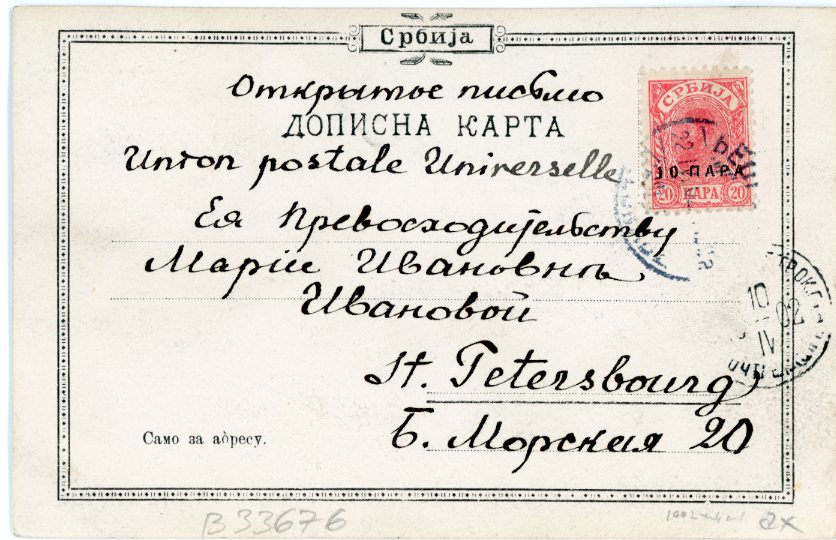 Србија
Открытое письмо
ДОПИСНА КАРТА
Union postale Universelle
Ея Превосходительству
Маріи Ивановнѣ
Ивановой
St. Petersbourg
Б. Морская 20
Само за адресу.
СРБИЈА
10 ПАРА
20 ПАРА 20
10
IV
02
B33676